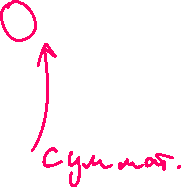 суммат.